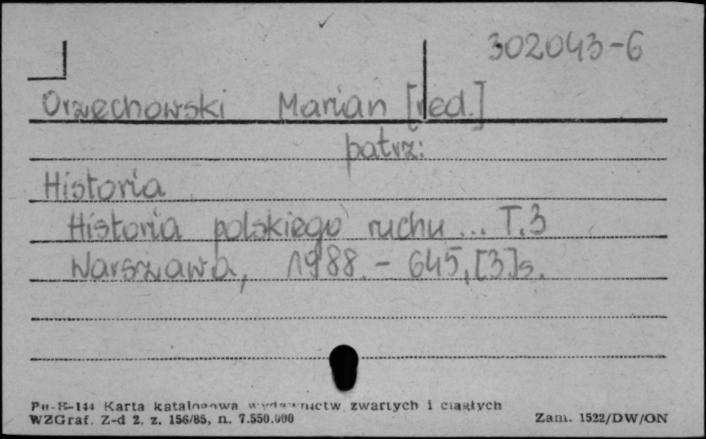 302043-6
Orzechowski Marian [red.]
patrz:
Historia
Historia polskiego ruchu ... T.3
Warszawa, 1988. - 645, [3] s.
Pu-K-144 Karta katalogowa wydawnictw zwartych i ciągłych
WZGraf. Z-d 2. z. 156/85, n. 7.550.000 Zam. 1522/DW/ON